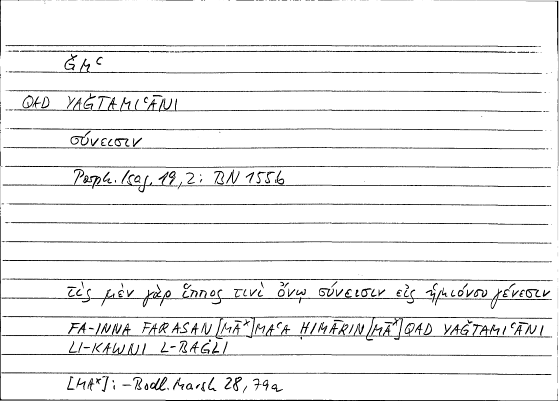 ǦMʿ
QAD YAǦTAMIʿĀNI
σύνεισιν
Porph. Isag. 19,2: BN 155b
τὶς μὲν γὰρ ἵππος τινὶ ὄνῳ σύνεισιν εἰς ἡμιόνου γένεσιν
FA-INNA FARASAN [MĀˣ] MAʿA ḤIMĀRIN [MĀˣ] QAD YAǦTAMIʿĀNI
LI-KAWNI L-BAĠLI
[MAˣ]: – Bodl. Marsh 28, 79a